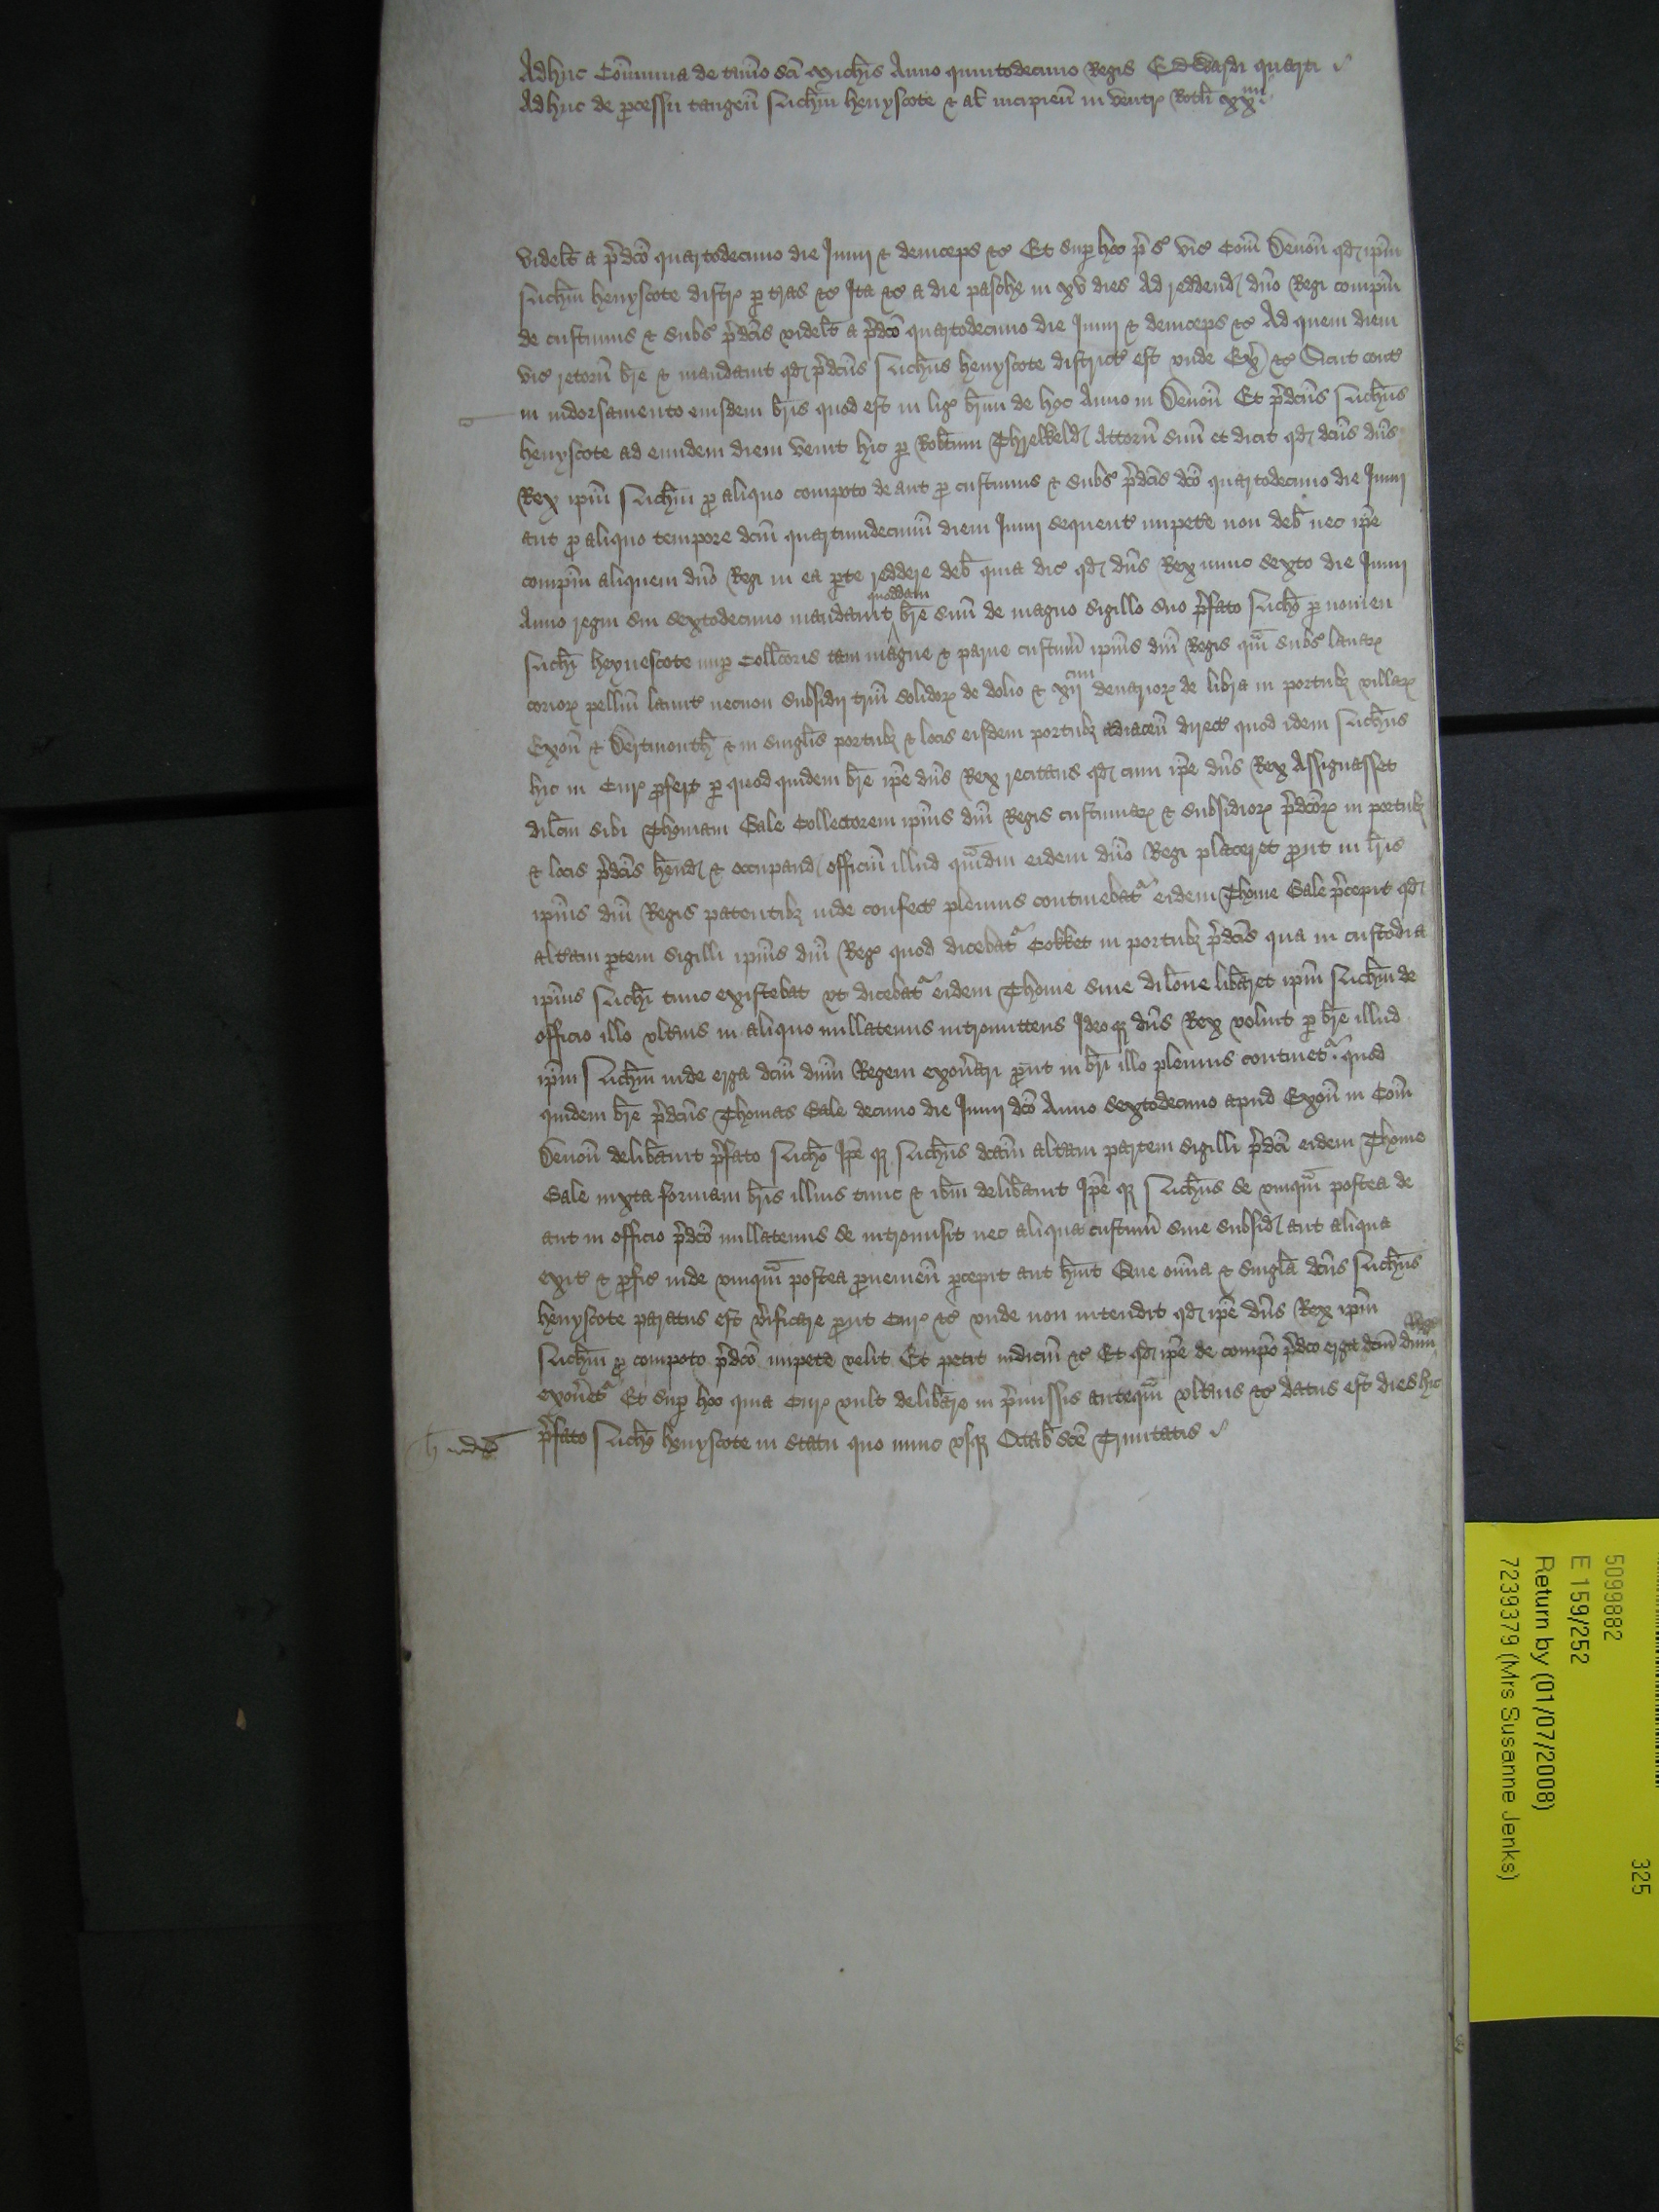 Adhuc Com̄unia de t'mīo sc̄i Mich̄is Anno quintodecimo Regis Edwardi quarti
Adhuc de p̄cessu tangen̄ Mich̄m henyscote & al' incipien̄ in ventr' Rotl̄i
videlt̄ a p̄dc̄o quartodecimo die Junij & deinceps &c̄ Et sup hoc p̄ s' vic' Com̄ Deuon̄ qd' ip̄m
Mich̄m henyscote distr' p tr̄as &c̄ Ita &c̄ a die pasche in xv dies Ad reddend' dn̄o Regi compm̄
de custumis & subs' p̄dc̄is videlt̄ a p̄dc̄o quartodecimo die Junij & deinceps &c̄ Ad quem diem
vic' retorn̄ br̄e & mandauit qd' p̄dc̄us Mich̄us henyscote district' est vnde Ex' &c̄ Sicut cont'
in indorsamento eiusdem br̄is quod est in lig' br̄ium de hoc Anno in Deuon̄ Et p̄dc̄us Mich̄us
henyscote ad eundem diem venit hic p Rob̄tum Threlkeld' Attorn̄ suū et dicit qd' dc̄us dn̄s
Rex ip̄m Mich̄m p̄ aliquo compoto de aut p̄ custumis & subs' p̄dc̄is dc̄o quartodecimo die Junij
aut p̄ aliquo tempore dc̄um quartumdecimū diem Junij sequent' impete non deb̄ nec ip̄e
compm̄ aliquem dn̄o Regi in ea pte reddere deb̄ quia dic' qd' dn̄s Rex nunc sexto die Junij
Anno regni sui sextodecimo mandauit quoddam br̄e suū de magno sigillo suo p̄fato Mich̄o p nomen
Mich̄i heynescote nup Coll̄coris tam magne & parue custum̄ ip̄ius dn̄i Regis qm̄ subs' lanar'
corior' pelliū lanut' necnon subsidij triū solidor' de dolio & xij cim denarior' de libra in portub; villar'
Exon̄ & Dertmouth̄ & in singlis portub; & locis eisdem portub; adiacen̄ direct' quod idem Mich̄us
hic in Cur' p̄fert p quod quidem br̄e ip̄e dn̄s Rex recitans qd' cum ip̄e dn̄s Rex Assignasset
dilc̄m sibi Thomam Gale Collectorem ip̄ius dn̄i Regis custumar' & subsidior' p̄dc̄or' in portub;
& locis p̄dc̄is hend' & occupand' officiū illud qm̄diu eidem dn̄o Regi placeret p̄ut in lr̄is
ip̄ius dn̄i Regis patentib; inde confect' plenius continebat' eidem Thome Gale p̄cepit qd'
alt'am ptem sigilli ip̄ius dn̄i Reg' quod dicebat' Cokket in portub; p̄dc̄is qua in custodia
ip̄ius Mich̄i tunc existebat vt dicebat' eidem Thome sine dilōne lib̄aret ip̄m Mich̄m de
officio illo vlt'ius in aliquo nullatenus intromittens Ideoq; dn̄s Rex voluit p br̄e illud
ip̄m Mich̄m inde erga dc̄m dn̄m Regem exon̄ari p̄ut in br̄i illo plenius continet' quod
quidem br̄e p̄dc̄us Thomas Gale decimo die Junij dc̄o Anno sextodecimo apud Exon̄ in Com̄
Deuon̄ delib̄auit p̄fato Mich̄o Ip̄eq; Mich̄us dc̄am alt'am partem sigilli p̄dc̄i eidem Thome
Gale iuxta formam br̄is illius tunc & ib̄m delib̄auit Ip̄eq; Mich̄us se vnqm̄ postea de
aut in officio p̄dc̄o nullatenus se intromisit nec aliqua custum̄ siue subsid' aut aliqua
exit' & p̄fic' inde vnqm̄ postea p̄uenien̄ pcepit aut h̄uit Que om̄ia & singla dc̄us Mich̄us
henyscote paratus est v'ificare p̄ut Cur' &c̄ vnde non intendit qd' ip̄e dn̄s Rex ip̄m
Mich̄m p̄ compoto p̄dc̄o impete velit Et petit iudiciū &c̄ Et qd' ip̄e de compo p̄dc̄o erga dc̄m dn̄m Reg'
exon̄et' Et sup hoc quia Cur' vult delib̄are in p̄missis anteqm̄ vlt'ius &c̄ datus est dies hic
p̄fato Mich̄o henyscote in statu quo nunc vsq; Octab̄ sc̄e Trinitatis
5099882
E 159/252
Return by (01/07/2008)
7239379 (Mrs Susanne Jenks)
325